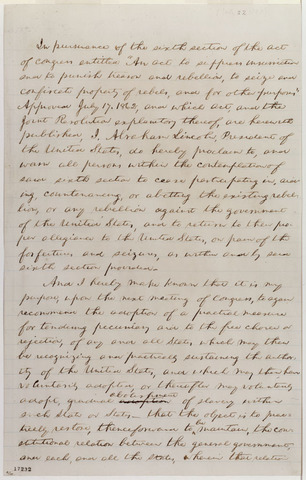 32
In pursuance of the sixth section of the act
of congress entitled "An act to suppress insurrection
and to punish treason and rebellion, to seize and
confiscate property of rebels, and for other purposes"
Approved July 17. 1862, and which act, and the
Joint Resolution explanatory thereof, are herewith
published, I, Abraham Lincoln, President of
the United States, do hereby proclaim to, and
warn all persons within the contemplation of
said sixth section to cease participating in, aid-
ing, countenancing, or abetting the existing rebel-
lion, or any rebellion against the government
of the United States, and to return to their pro-
per allegiance to the United States, on pain of the
forfeitures and seizures, as within and by said
sixth section provided.
And I hereby make known that it is my
purpose, upon the next meeting of Congress, to again
recommend the adoption of a practical measure
for tendering pecuniary aid to the free choice or
rejection, of any and all States which may then
be recognizing and practically sustaining the author-
ity of the United States, and which may then have
voluntarily adopted, or thereafter may voluntarily
adopt, gradual abolishment of slavery within
such State or States - that the object is to prac-
tically restore, thenceforward to be maintain, the con-
stitutional relation between the general government,
and each, and all the States, wherein that relation
17232